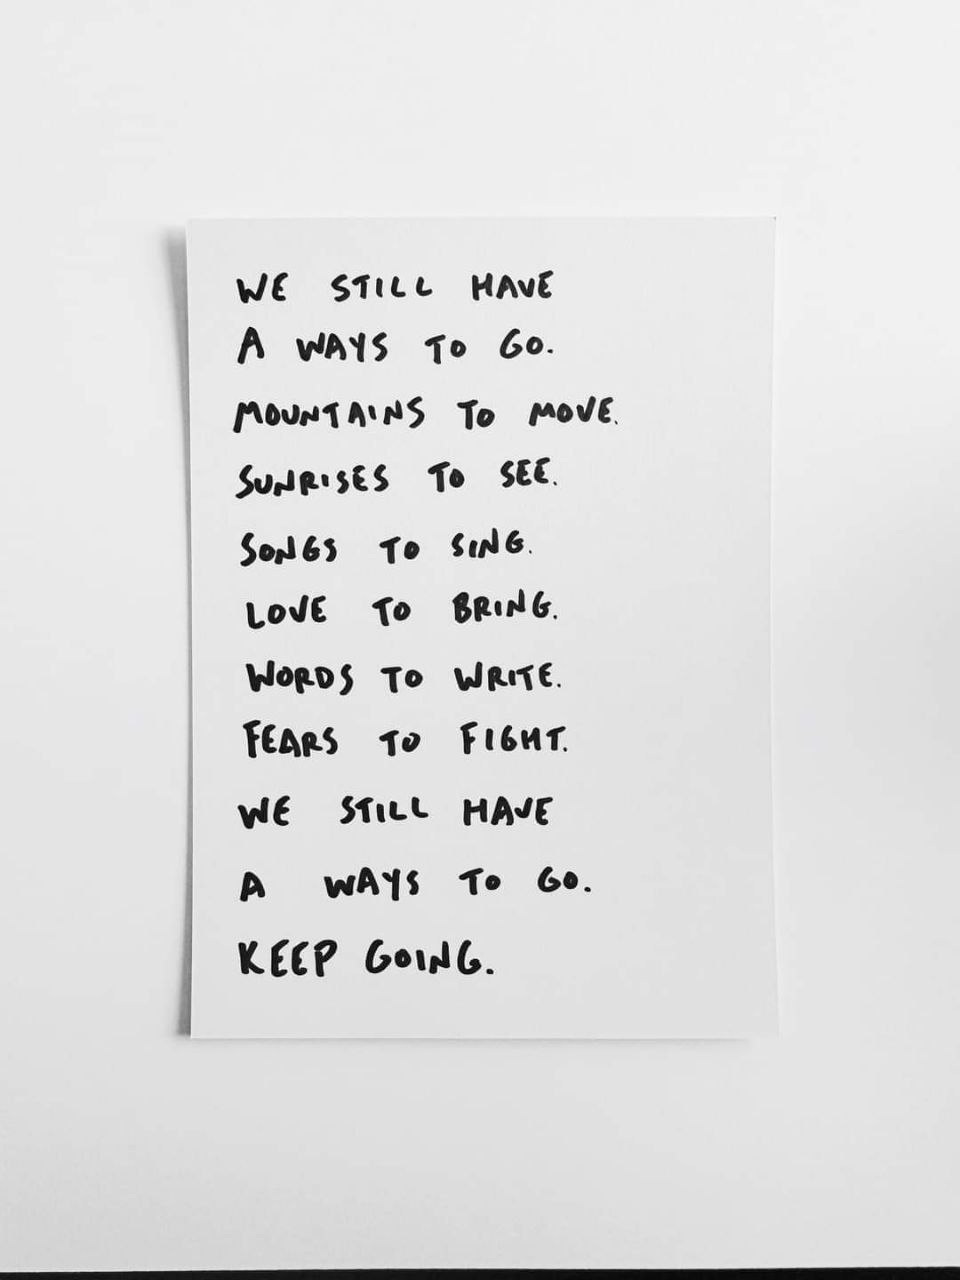 WE STILL HAVE
A WAYS TO GO.
MOUNTAINS TO MOVE.
SUNRISES TO SEE.
SONGS TO SING.
LOVE TO BRING.
WORDS TO WRITE.
FEARS TO FIGHT.
WE STILL HAVE
A WAYS TO GO.
KEEP GOING.